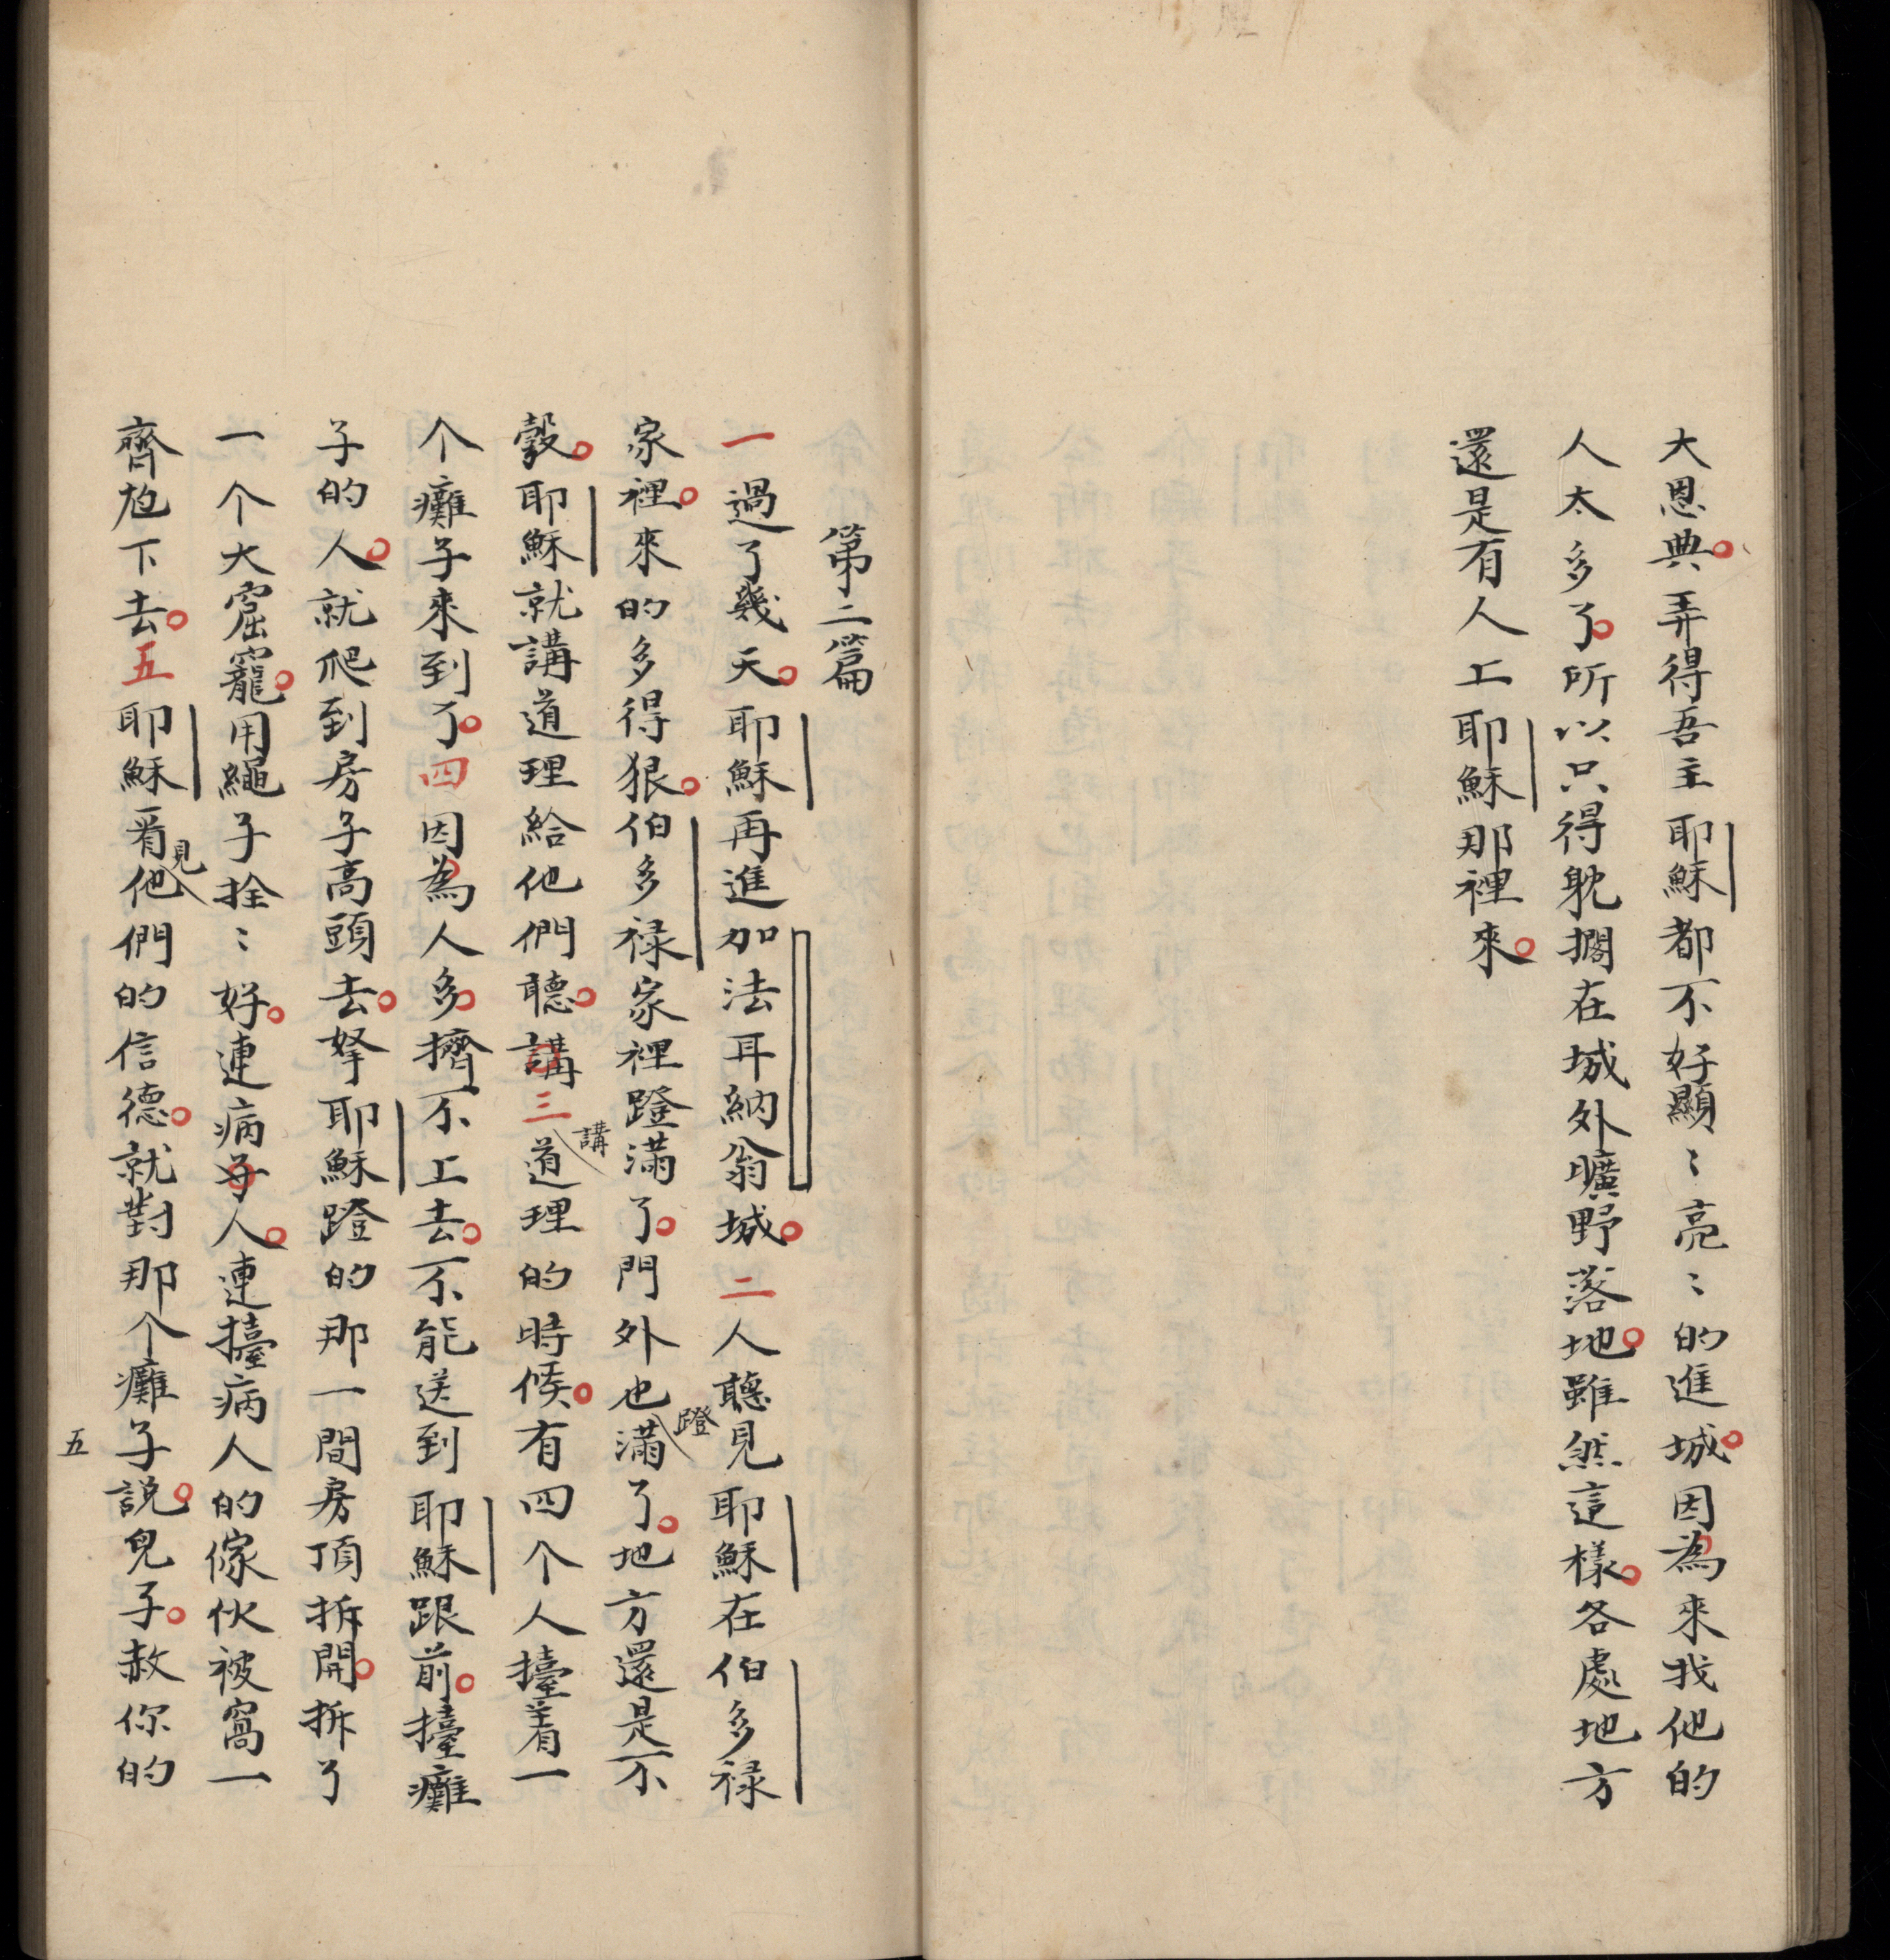 大恩典。弄得吾主耶穌都不好顯〻亮〻的進城。因為來找他的
人太多了。所以只得躭擱在城外曠野落地。雖然這樣。各處地方
還是有人上耶穌那裡來。
第二篇
一過了幾天。耶穌再進加法耳納翁城。二人聽見耶穌在伯多祿
家裡。來的多得狠。伯多祿家裡蹬滿了。門外也蹬滿了。地方還是不
彀。耶穌就講道理給他們聽。講三講道理的時候。有四个人擡着一
个癱子來到了。四因為人多。擠不上去。不能送到耶穌跟前。擡癱
子的人。就爬到房子高頭去。拏耶穌蹬的那一間房頂拆開。拆了
一个大窟窿。用繩子拴〻好。連病子人。連擡病人的傢伙被窩一
齊尥下去。五耶穌看見他們的信德。就對那个癱子說。兒子。赦你的
五